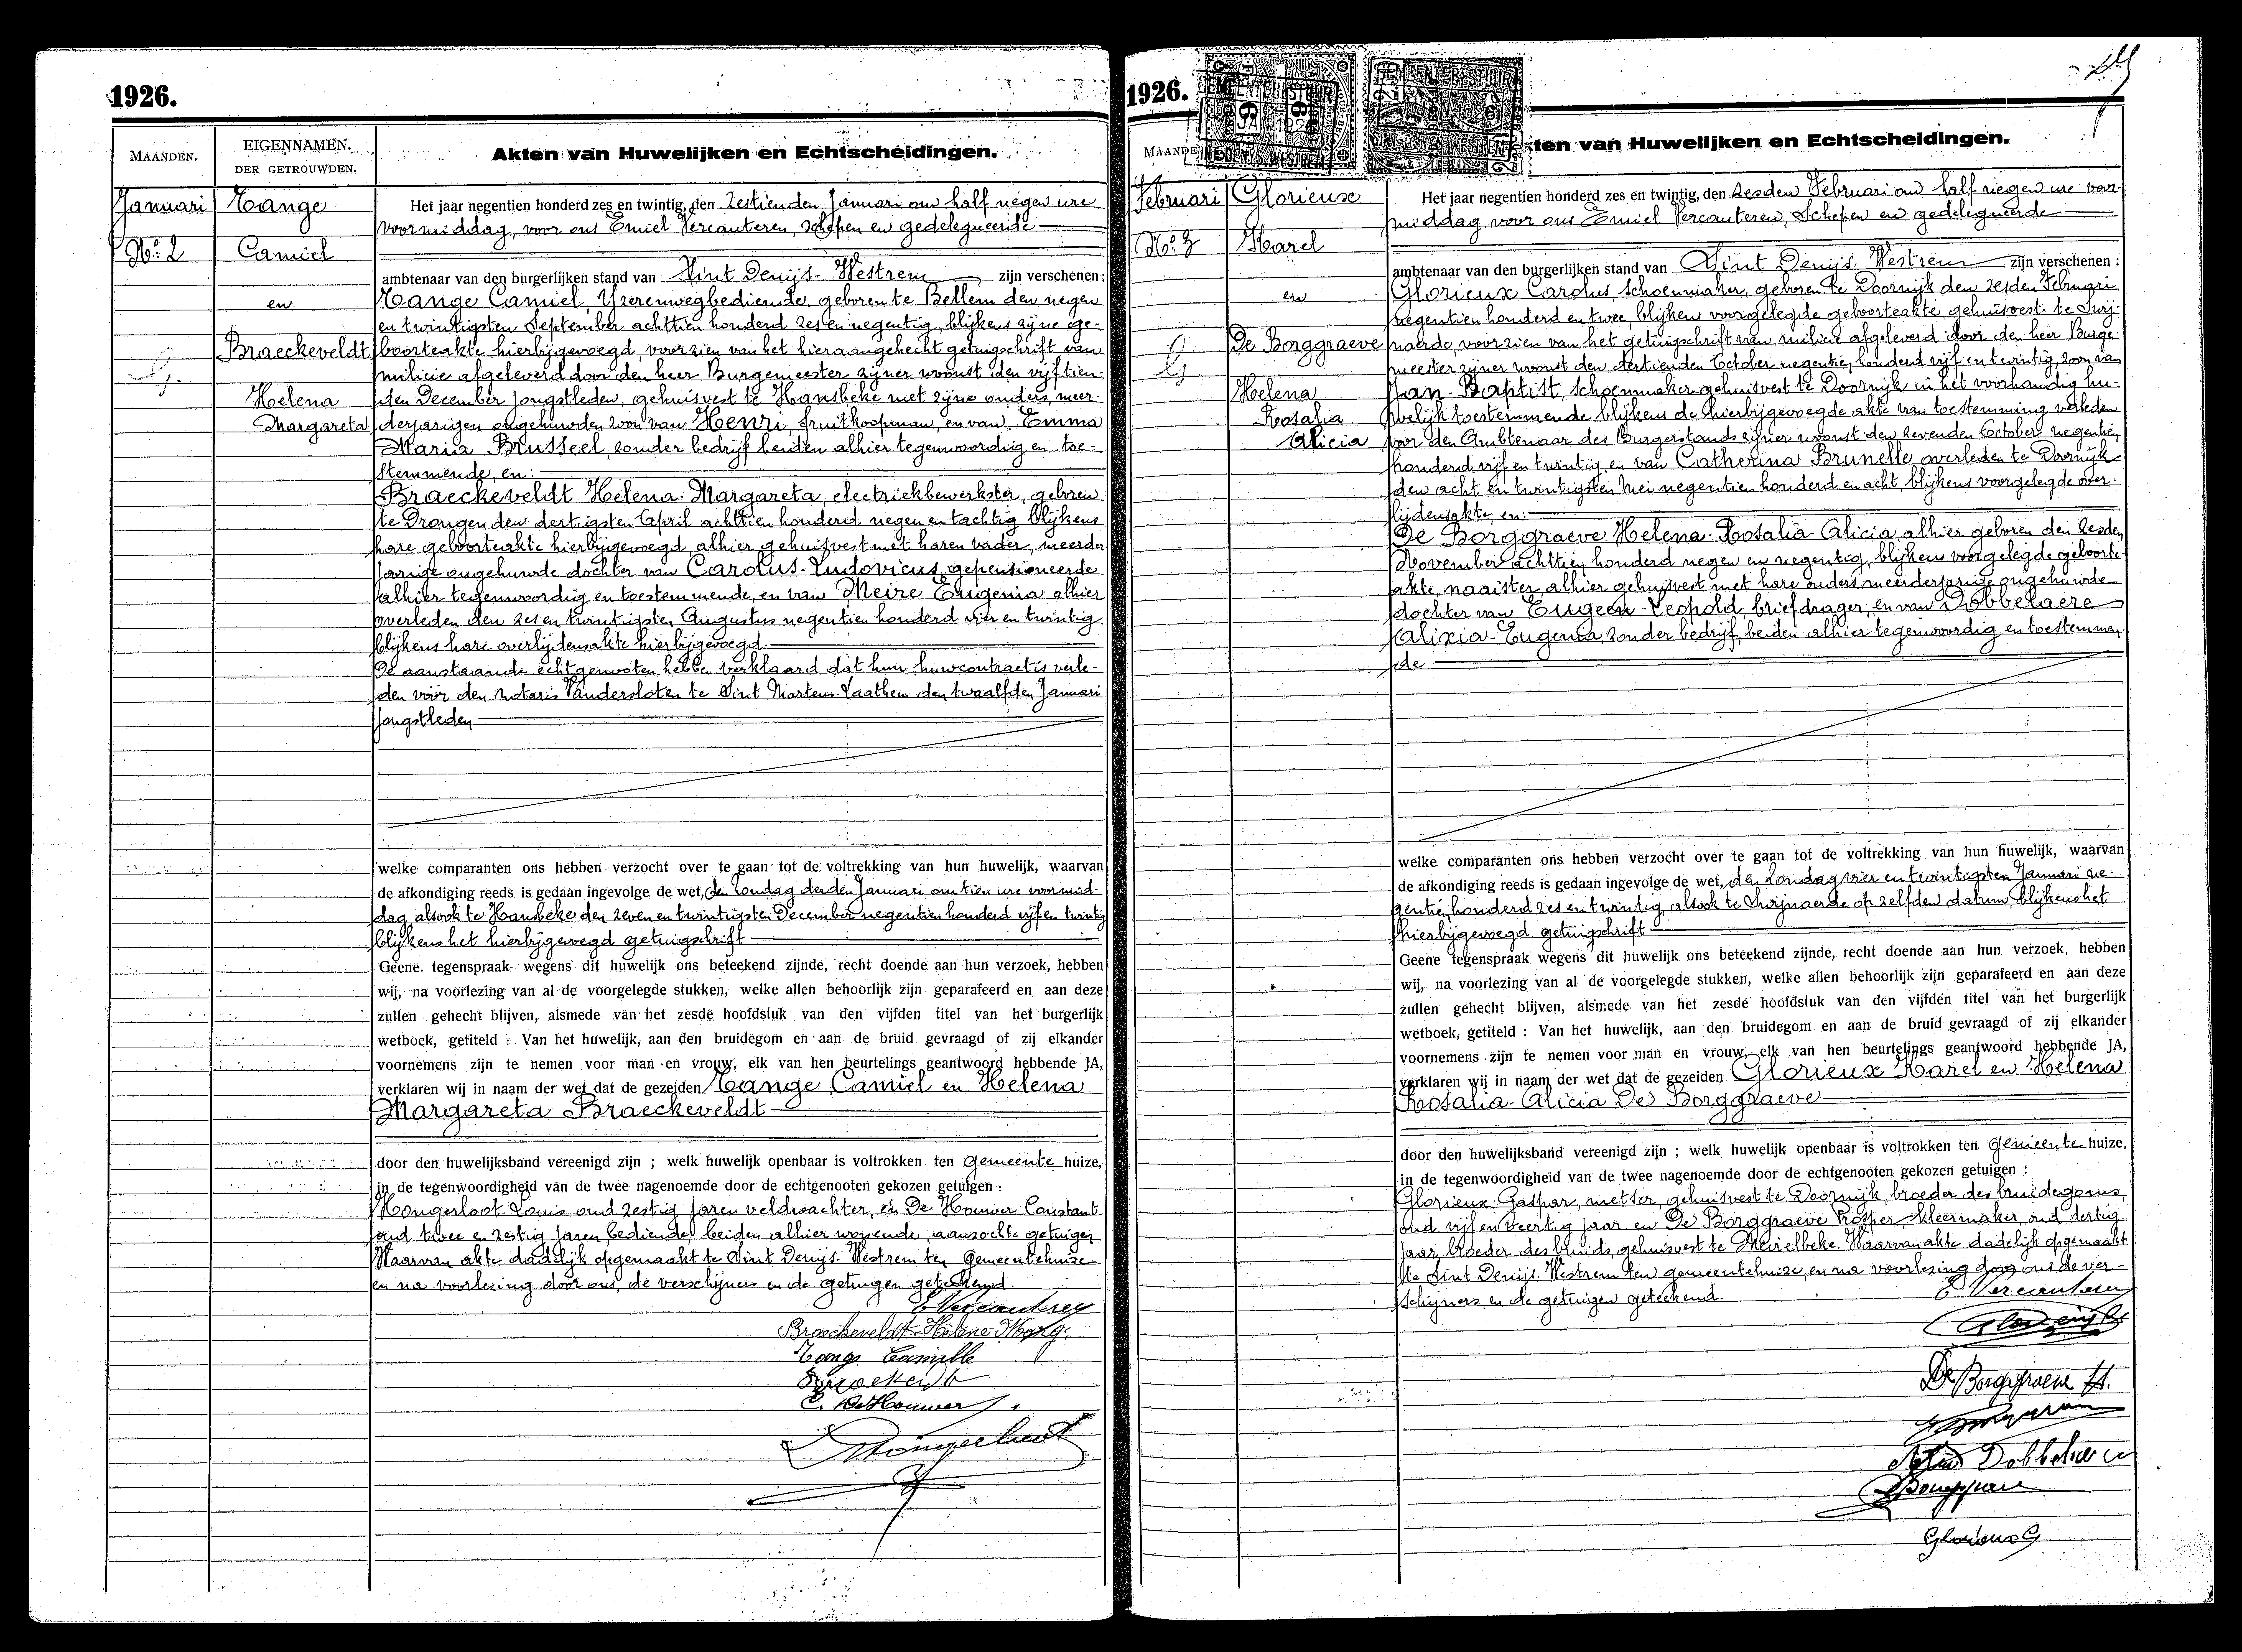 1926.
MAANDEN.
EIGENNAMEN.
DER GETROUWDEN.
Akten van Huwelijken en Echtscheidingen.
Januari
Tange
Nº 2
Camiel
en
Braeckeveldt
Helena
Margareta
Het jaar negentien honderd zes en twintig, den zestienden Januari om half negen ure
voormiddag, voor ons Emiel Vercauteren, schepen en gedelegueerde
ambtenaar van den burgerlijken stand van Sint Denijs-Westrem zijn verschenen:
Tange Camiel, Yzerenwegbediende, geboren te Bellem den negen
en twintigsten September achttien honderd zes en negentig, blijkens zijne ge-
boorteakte hierbijgevoegd, voorzien van het hieraangehecht getuigschrift van
milicie afgeleverd door den heer Burgemeester zijner woonst den vijftien-
den December jongstleden, gehuisvest te Hansbeke met zijne ouders, meer-
derjarigen ongehuwden zoon van Henri, fruitkoopman, en van Emma
Maria Brusseel, zonder bedrijf beiden alhier tegenwoordig en toe-
stemmende, en:
Braeckeveldt Helena-Margareta, electriekbewerkster, geboren
te Drongen den dertigsten April achttien honderd negen en tachtig blijkens
hare geboorteakte hierbijgevoegd, alhier gehuisvest met haren vader, meerder
jarige ongehuwde dochter van Carolus-Ludovicus, gepensioneerde
alhier tegenwoordig en toestemmende, en van Meire Eugenia alhier
overleden den zes en twintigsten Augustus negentien honderd vier en twintig
blijkens hare overlijdensakte hierbijgevoegd.
De aanstaande echtgenooten hebben verklaard dat hun huwcontract is verle-
den vóór den notaris Vandersloten te Sint Martens-Laathem den twaalfden Januari
jongstleden
welke comparanten ons hebben verzocht over te gaan tot de voltrekking van hun huwelijk, waarvan
de afkondiging reeds is gedaan ingevolge de wet, den zondag derden Januari om tien ure voormid-
dag alsook te Hansbeke den zeven en twintigsten December negentien honderd vijf en twintig
blijkens het hierbijgevoegd getuigschrift
Geene tegenspraak wegens dit huwelijk ons beteekend zijnde, recht doende aan hun verzoek, hebben
wij, na voorlezing van al de voorgelegde stukken, welke allen behoorlijk zijn geparafeerd en aan deze
zullen gehecht blijven, alsmede van het zesde hoofdstuk van den vijfden titel van het burgerlijk
wetboek, getiteld : Van het huwelijk, aan den bruidegom en aan de bruid gevraagd of zij elkander
voornemens zijn te nemen voor man en vrouw, elk van hen beurtelings geantwoord hebbende JA,
verklaren wij in naam der wet dat de gezeiden Tange Camiel en Helena
Margareta Braeckeveldt
door den huwelijksband vereenigd zijn ; welk huwelijk openbaar is voltrokken ten gemeente huize,
in de tegenwoordigheid van de twee nagenoemde door de echtgenooten gekozen getuigen :
Hongerloot Louis oud zestig jaren veldwachter, en De Houwer Constant
oud twee en zestig jaren, bediende, beiden alhier wonende, aanzochte getuigen
Waarvan akte dadelijk opgemaakt te Sint Denijs-Westrem ten gemeentehuize
en na voorlezing door ons, de verschijners en de getuigen geteekend.
E Vercauteren
Braeckeveldt-Hélène Marg.
Tange Camille
C. DeHouwer
1926.
Februari
Glorieux
Nº 3
Karel
en
De Borggraeve
Helena
Rosalia
Alicia
ten van Huwelijken en Echtscheidingen.
Het jaar negentien honderd zes en twintig, den zesden Februari om half negen ure voor-
middag, voor ons Emiel Vercauteren, Schepen en gedelegueerde
ambtenaar van den burgerlijken stand van Sint Denijs-Westrem zijn verschenen :
Glorieux Carolus, schoenmaker, geboren te Doornijk den zesden Februari
negentien honderd en twee, blijkens voorgelegde geboorteakte, gehuisvest te Zwij-
naarde, voorzien van het getuigschrift van milicie afgeleverd door den heer Burge-
meester zijner woonst den dertienden October negentien honderd vijf en twintig, zoon van
Jan-Baptist, schoenmaker gehuisvest te Doornijk in het voorhandig hu-
welijk toestemmende blijkens de hierbijgevoegde akte van toestemming verleden
voor den Ambtenaar des Burgerstands zijner woonst den zevenden October negentien
honderd vijf en twintig, en van Catherina Brunelle overleden te Doornijk
den acht en twintigsten Mei negentien honderd en acht, blijkens voorgelegde over-
lijdensakte, en:
De Borggraeve Helena-Rosalia-Alicia, alhier geboren den zesden
November achttien honderd negen en negentig, blijkens voorgelegde geboorte-
akte, naaister, alhier gehuisvest met hare ouders, meerderjarige ongehuwde
dochter van Eugeen-Leopold, briefdrager, en van Dobbelaere
Alixia-Eugenia, zonder bedrijf, beiden alhier tegenwoordig en toestemmen-
de
welke comparanten ons hebben verzocht over te gaan tot de voltrekking van hun huwelijk, waarvan
de afkondiging reeds is gedaan ingevolge de wet, den zondag vier en twintigsten Januari ne-
gentien honderd zes en twintig, alsook te Zwijnaerde op zelfden datum, blijkens het
hierbijgevoegd getuigschrift
Geene tegenspraak wegens dit huwelijk ons beteekend zijnde, recht doende aan hun verzoek, hebben
wij, na voorlezing van al de voorgelegde stukken, welke allen behoorlijk zijn geparafeerd en aan deze
zullen gehecht blijven, alsmede van het zesde hoofdstuk van den vijfden titel van het burgerlijk
wetboek, getiteld : Van het huwelijk, aan den bruidegom en aan de bruid gevraagd of zij elkander
voornemens zijn te nemen voor man en vrouw, elk van hen beurtelings geantwoord hebbende JA,
verklaren wij in naam der wet dat de gezeiden Glorieux Karel en Helena
Rosalia-Alicia De Borggraeve
door den huwelijksband vereenigd zijn ; welk huwelijk openbaar is voltrokken ten gemeente huize,
in de tegenwoordigheid van de twee nagenoemde door de echtgenooten gekozen getuigen :
Glorieux Gaspar, metser, gehuisvest te Doornijk, broeder des bruidegoms,
oud vijf en veertig jaar, en De Borggraeve Prosper, kleermaker, oud dertig
jaar, broeder des bruids, gehuisvest te Meirelbeke. Waarvan akte dadelijk opgemaakt
te Sint Denijs-Westrem ten gemeentehuize, en na voorlezing door ons, de ver-
schijners en de getuigen geteekend.
E Vercauteren
De Borggraeve H.
Glorieux G